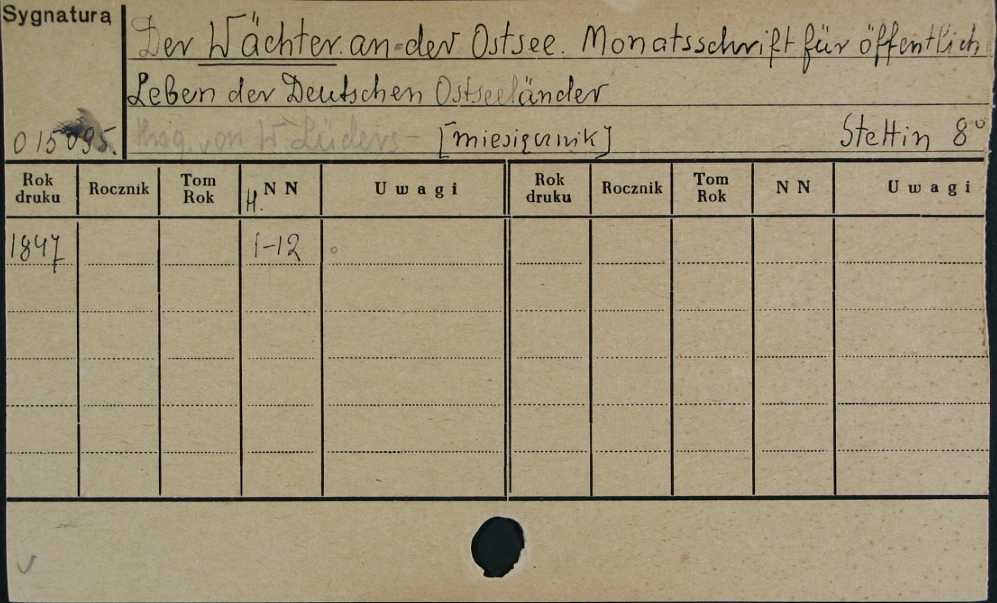 Sygnatura
Der Wächter an der Ostsee. Monatsschrift für öffentlich
Leben der Deutschen Ostseeländer
015095. Hrsg. von W. Lüders - [miesięcznik] Stettin 8°
Rok druku Rocznik Tom Rok H. NN Uwagi Rok druku Rocznik Tom Rok NN Uwagi
1847 1-12